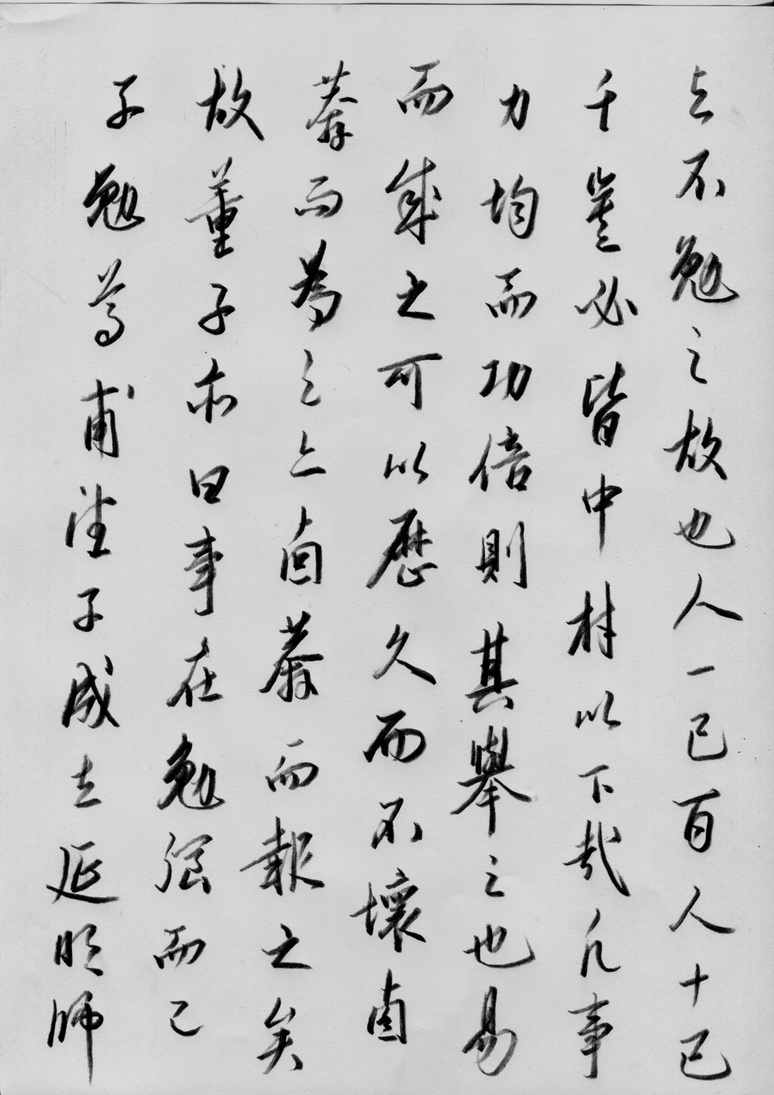 立不勉之故也人一己百人十己
千豈必皆中材以下哉凡事
力均而功倍則其舉之也易
而成之可以歷久而不壞鹵
莽而為之亦鹵莽而報之矣
故董子亦曰事在勉强而已
子勉尊甫望子成立延明師